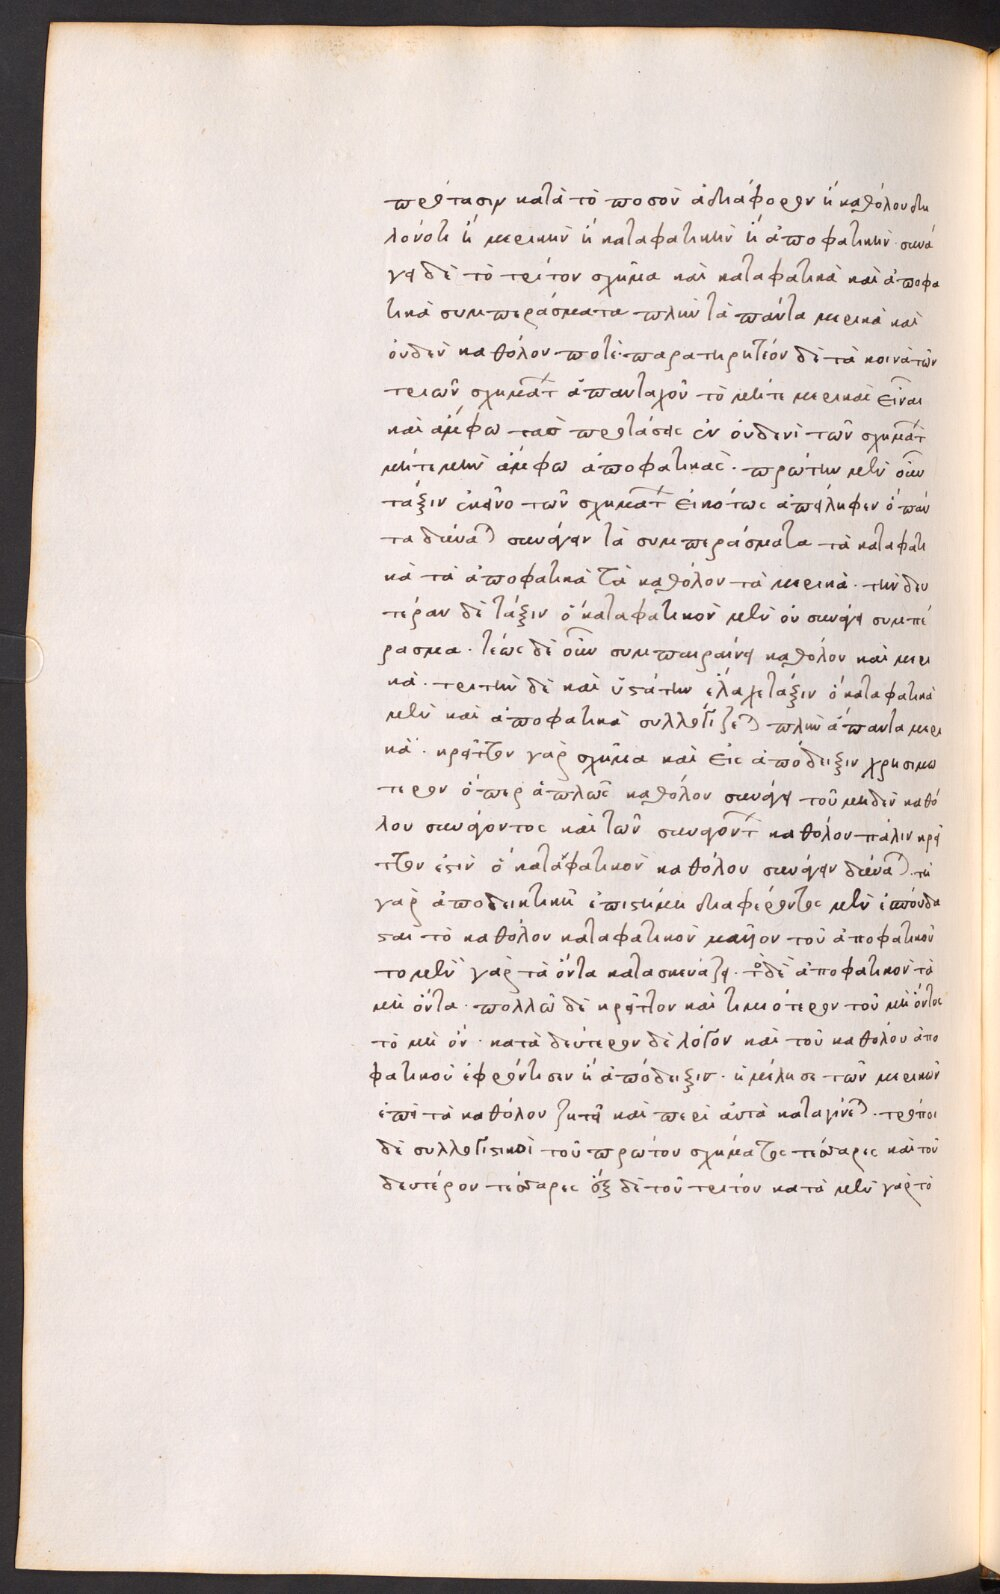 πρότασιν κατὰ τὸ ποσὸν ἀδιάφορον ἢ καθόλου δη
λονότι ἢ μερικὴν ἢ καταφατικὴν ἢ ἀποφατικὴν· συνά
γει δὲ τὸ τρίτον σχῆμα καὶ καταφατικὰ καὶ ἀποφα
τικὰ συμπεράσματα πλὴν τὰ πάντα μερικὰ καὶ
οὐδὲν καθόλου ποτέ· παρατηρητέον δὲ τὰ κοινὰ τῶν
τριῶν σχημάτ ἁπανταχοῦ τὸ μήτε μερικαὶ εἶναι
καὶ ἄμφω τὰς προτάσεις ἐν οὐδενὶ τῶν σχημάτ
μήτε μὴν ἄμφω ἀποφατικάς· πρώτην μὲν οὖν
τάξιν ἐκεῖνο τῶν σχημάτ εἰκότως ἀπείληφεν ὁ πάν
τα δύνα συνάγειν τὰ συμπεράσματα τὰ καταφατι
κὰ τὰ ἀποφατικὰ τὰ καθόλου τὰ μερικά· τὴν δευ
τέραν δὲ τάξιν ὃ καταφατικὸν μὲν οὐ συνάγει συμπέ
ρασμα· τέως δὲ οὖν συμπεραίνει καθόλου καὶ μερι
κά· τρίτην δὲ καὶ ὑστάτην ἔλαχε τάξιν ὃ καταφατικὰ
μὲν καὶ ἀποφατικὰ συλλογίζε πλὴν ἅπαντα μερι
κά· κρεῖττον γὰρ σχῆμα καὶ εἰς ἀπόδειξιν χρησιμώ
τερον ὅπερ ἁπλῶς καθόλου συνάγει τοῦ μηδὲν καθό
λου συνάγοντος καὶ τῶν συναγόντ καθόλου πάλιν κρεῖ
ττον ἐστὶν ὃ καταφατικὸν καθόλου συνάγειν δύνα· τῇ
γὰρ ἀποδεικτικῇ ἐπιστήμῃ διαφερόντως μὲν ἐσπούδα
σται τὸ καθόλου καταφατικὸν μᾶλλον τοῦ ἀποφατικοῦ
τὸ μὲν γὰρ τὰ ὄντα κατασκευάζει· τὸ δὲ ἀποφατικὸν τὰ
μὴ ὄντα· πολλῷ δὲ κρεῖττον καὶ τιμιώτερον τοῦ μὴ ὄντος
τὸ μὴ ὄν· κατὰ δεύτερον δὲ λόγον καὶ τοῦ καθόλου ἀπο
φατικοῦ ἐφρόντισεν ἡ ἀπόδειξιν· ἠμέλησε τῶν μερικῶν
ἐπεὶ τὰ καθόλου ζητεῖ καὶ περὶ αὐτὰ καταγίνε· τρόποι
δὲ συλλογιστικοὶ τοῦ πρώτου σχήματος τέσσαρες καὶ τοῦ
δευτέρου τέσσαρες ἓξ δὲ τοῦ τρίτου κατὰ μὲν γὰρ τὸ